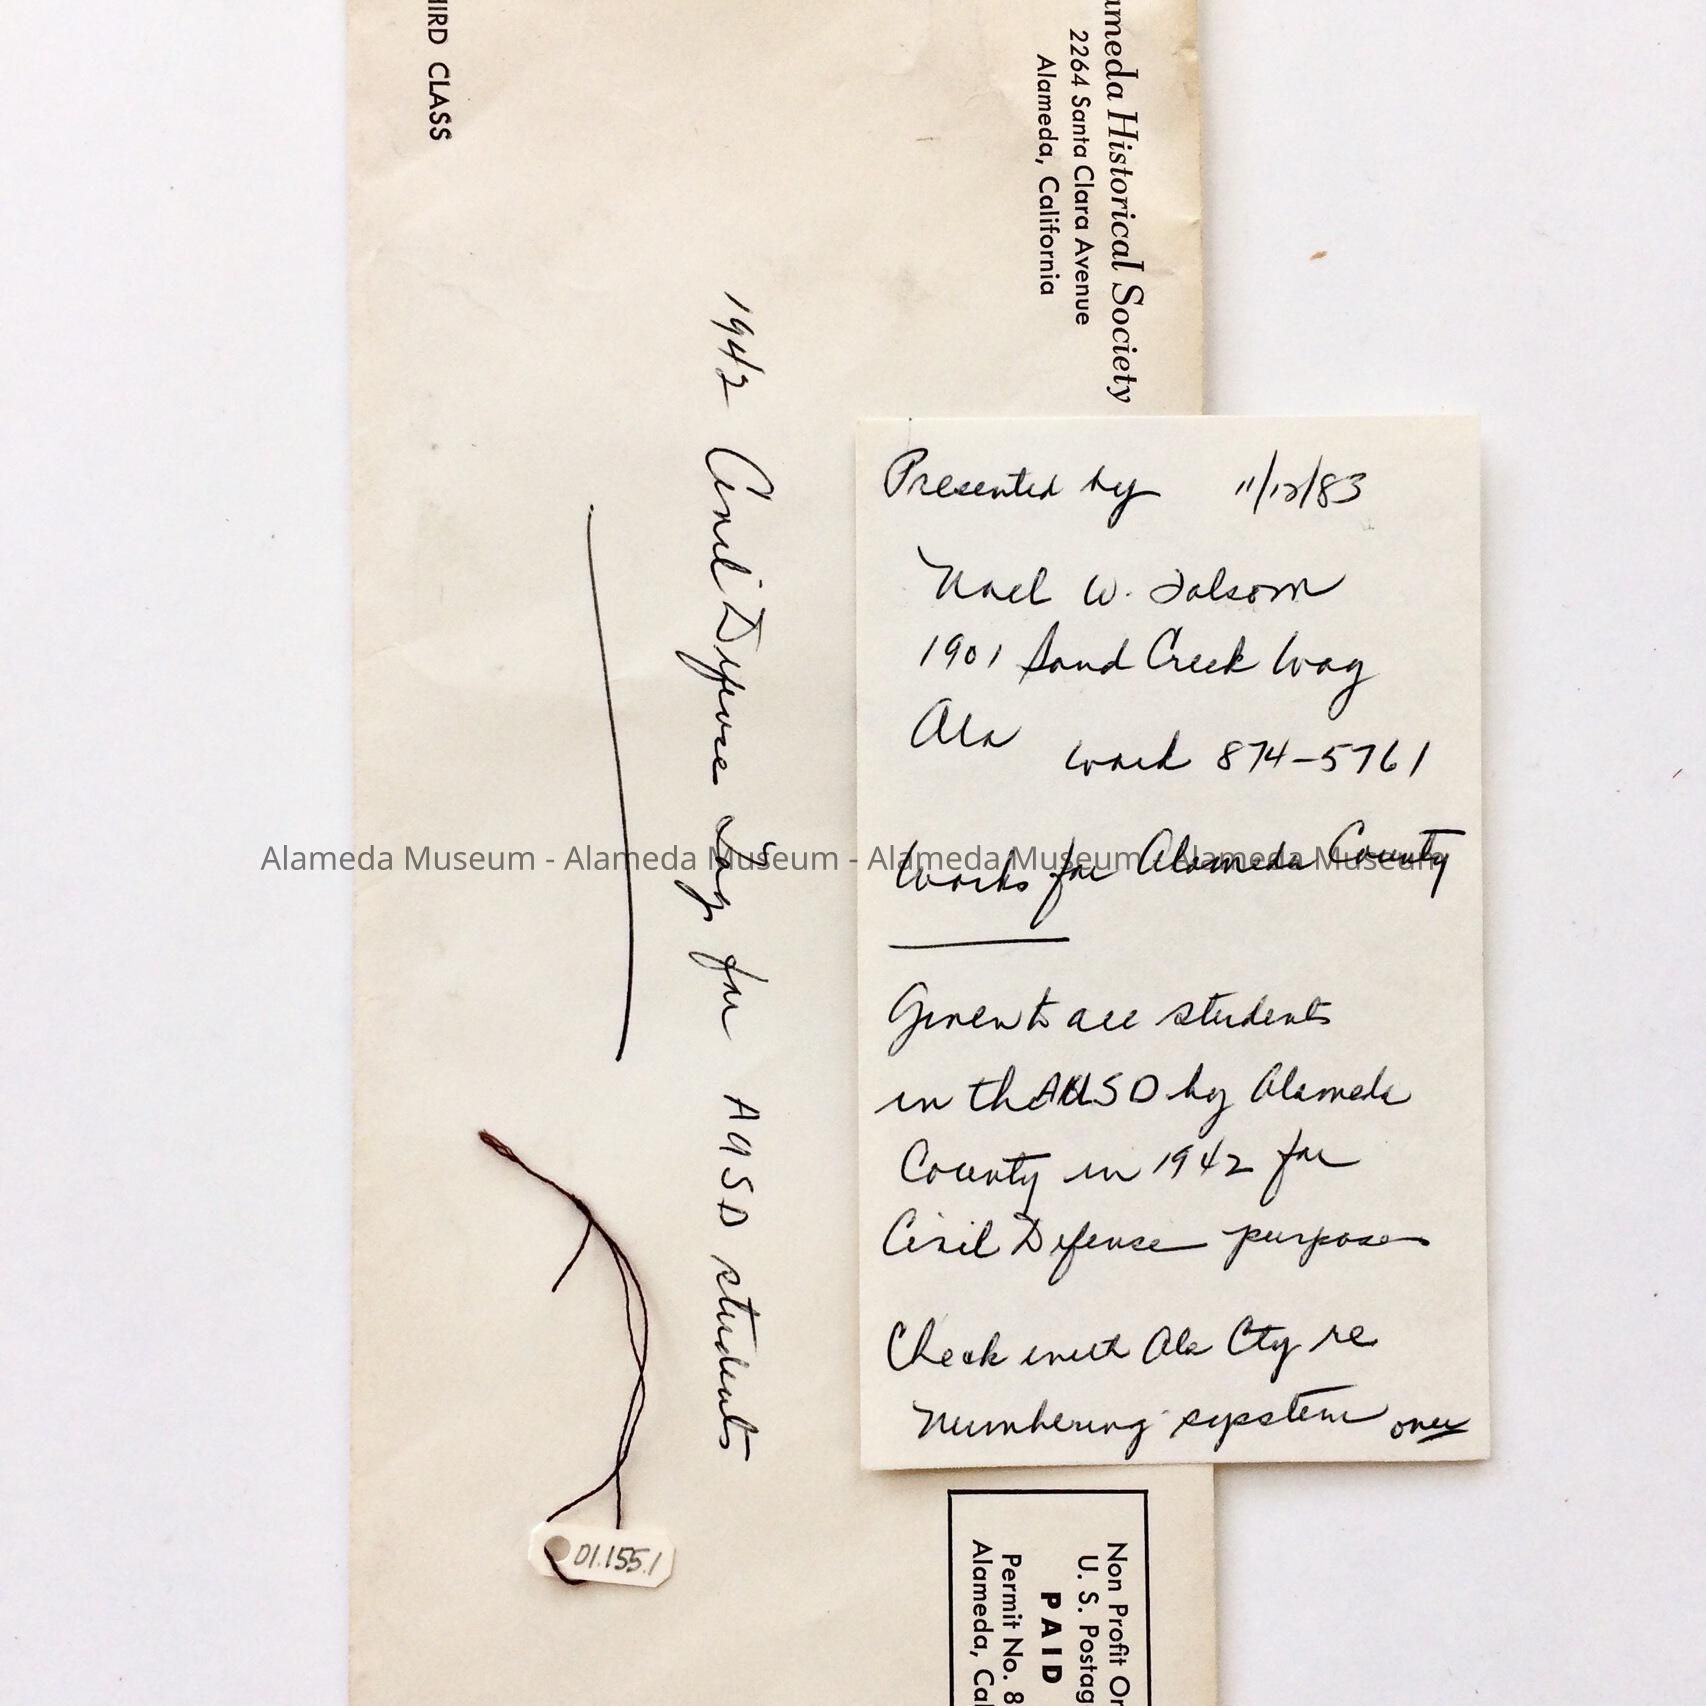 THIRD CLASS
Alameda Historical Society
2264 Santa Clara Avenue
Alameda, California
1942 Civil Defense Tag for AUSD students
Presented by 11/12/83
Noel W. Folsom
1901 Sand Creek Way
Ala
work 874-5761
Works for Alameda County
Given to all students
in the AUSD by Alameda
County in 1942 for
Civil Defense purposes
Check with Ala Cty re
Numbering system over
Alameda Museum - Alameda Museum - Alameda Museum - Alameda Museum
01.155.1
Non Profit Or
U. S. Postag
PAID
Permit No. 8
Alameda, Cal